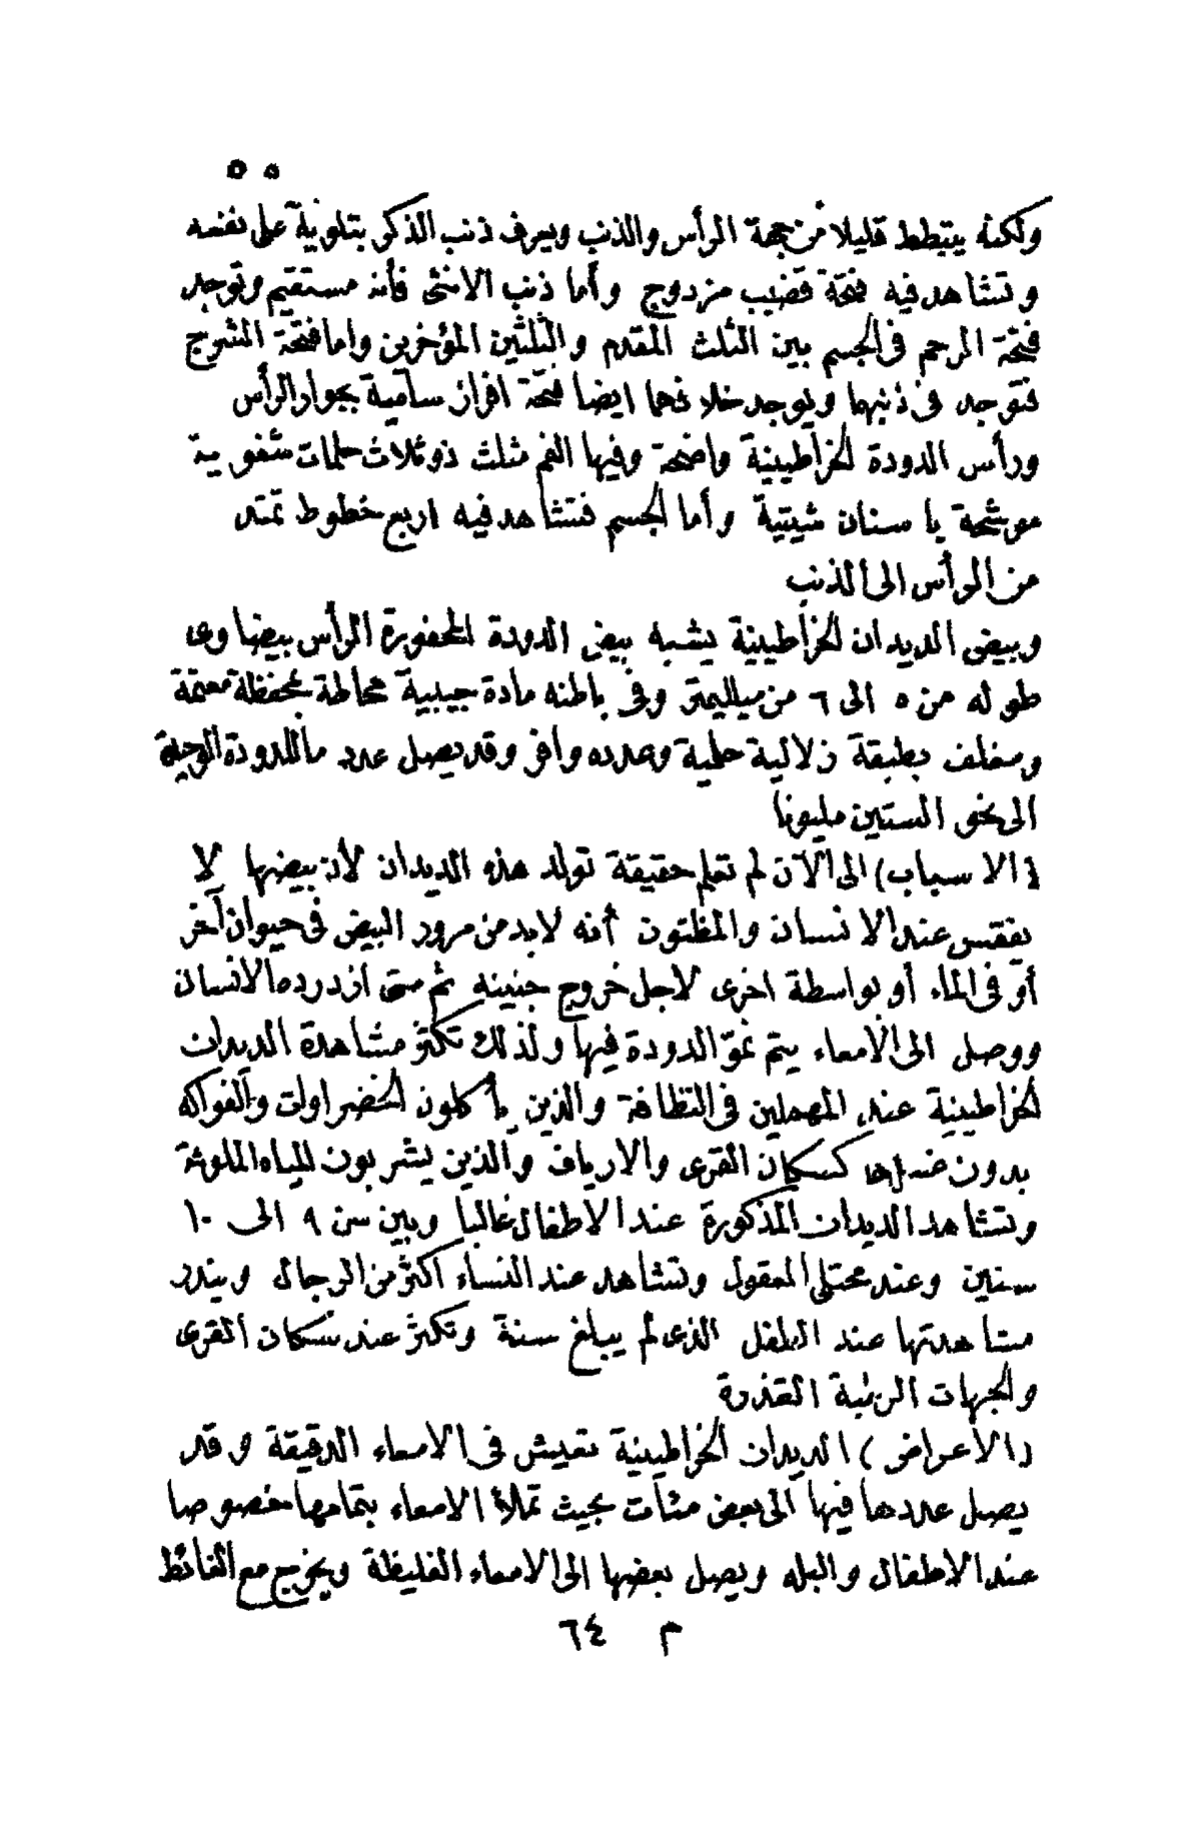 ٥٥
ولكنه يتبطط قليلا من جهة الرأس والذنب ويعرف ذنب الذكر بتلويه على نفسه
وتشاهد فيه فتحة قضيب مزدوج وأما ذنب الانثى فأنه مستقيم وتوجد
فتحة الرحم فى الجسم بين الثلث المقدم والثلثين المؤخرين واما فتحة الشرج
فتوجد فى ذنبها ويوجد خلافهما ايضا فتحة افراز سامية بجوار الرأس
ورأس الدودة الخراطينية واضحة وفيها الفم مثلث ذو ثلاث حلمات شفوية
موشحة با سنان شيتية وأما الجسم فتشاهد فيه اربع خطوط تمتد
من الرأس الى الذنب
وبيض الديدان الخراطينية يشبه بيض الدودة المحفورة الرأس بيضاوى
طوله من ٥ الى ٦ من ميلليمتر وفى باطنه مادة حبيبية محاطة بمحفظة معتمة
ومغلف بطبقة زلالية حلمية وعدده وافر وقد يصل عدد ما للدودة الوحيدة
الى نحو الستين مليونا
(الاسباب) الى الآن لم تعلم حقيقة تولد هذه الديدان لأن بيضها لا
يفقس عند الانسان والمظنون أنه لابد من مرور البيض فى حيوان آخر
أو فى الماء أو بواسطة اخرى لاجل خروج جنينه ثم متى ازدرده الانسان
ووصل الى الأمعاء يتم نموّ الدودة فيها ولذلك تكثر مشاهدة الديدان
الخراطينية عند المهملين فى النظافة والذين يأكلون الخضراوات والفواكه
بدون غسلها كسكان القرى والارياف والذين يشربون المياه الملوثة
وتشاهد الديدان المذكورة عند الاطفال غالبا وبين سن ٩ الى ١٠
سنين وعند مختلى العقول وتشاهد عند النساء اكثر من الرجال ويندر
مشاهدتها عند الطفل الذى لم يبلغ سنة وتكثر عند سكان القرى
والجهات الرطبة القذرة
(الأعراض) الديدان الخراطينية تعيش فى الامعاء الدقيقة وقد
يصل عددها فيها الى بعض مئات بحيث تملأ الامعاء بتمامها خصوصا
عند الاطفال والبله ويصل بعضها الى الامعاء الغليظة ويخرج مع الغائط
م ٦٤